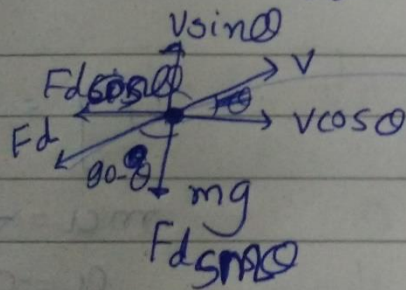 Vsinθ
V
Fd cosθ
θ
Vcosθ
Fd
90-θ
mg
Fd sinθ